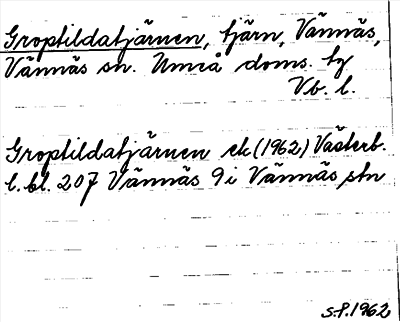 Groptildatjärnen, tjärn, Vännäs,
Vännäs sn. Umeå doms. ty
Vb. l.
Groptildatjärnen ek (1962) Västerb.
l. bl. 207 Vännäs 9i Vännäs stn
S.P. 1962